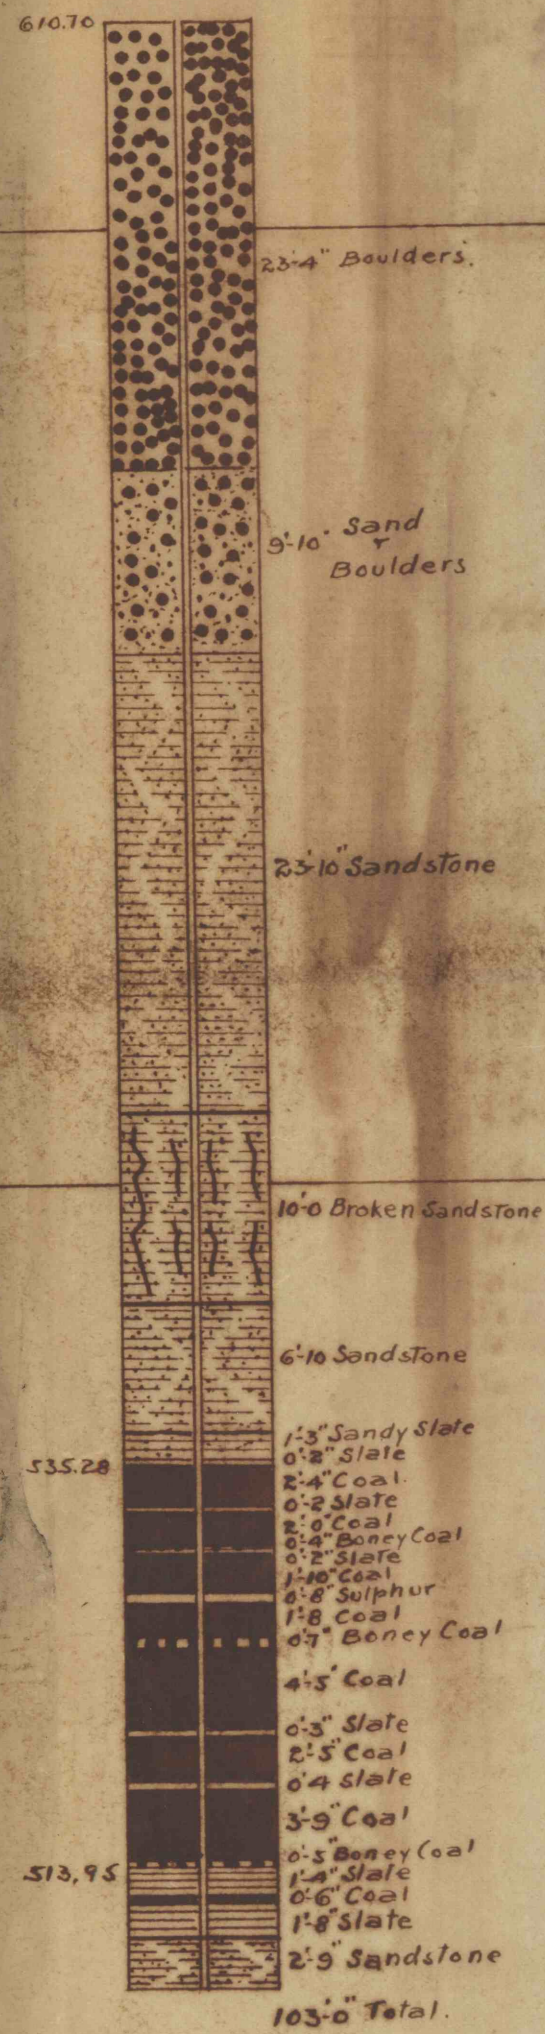 610.70
23'-4" Boulders.
9'-10" Sand
&
Boulders
23'-10" Sandstone
10'-0 Broken Sandstone
6'-10 Sandstone
1'-3" Sandy Slate
0'-2" Slate
535.28
2'-4" Coal.
0'-2 Slate
2'-0" Coal
0'-4" Boney Coal
0'-2" Slate
1'-10" Coal
0'-8" Sulphur
1'-8 Coal
0'-7" Boney Coal
4'-5" Coal
0'-3" Slate
2'-5" Coal
0'-4 Slate
3'-9" Coal
0'-5" Boney Coal
513.95
1'-4" Slate
0'-6" Coal
1'-8" Slate
2'-9" Sandstone
103'-0" Total.